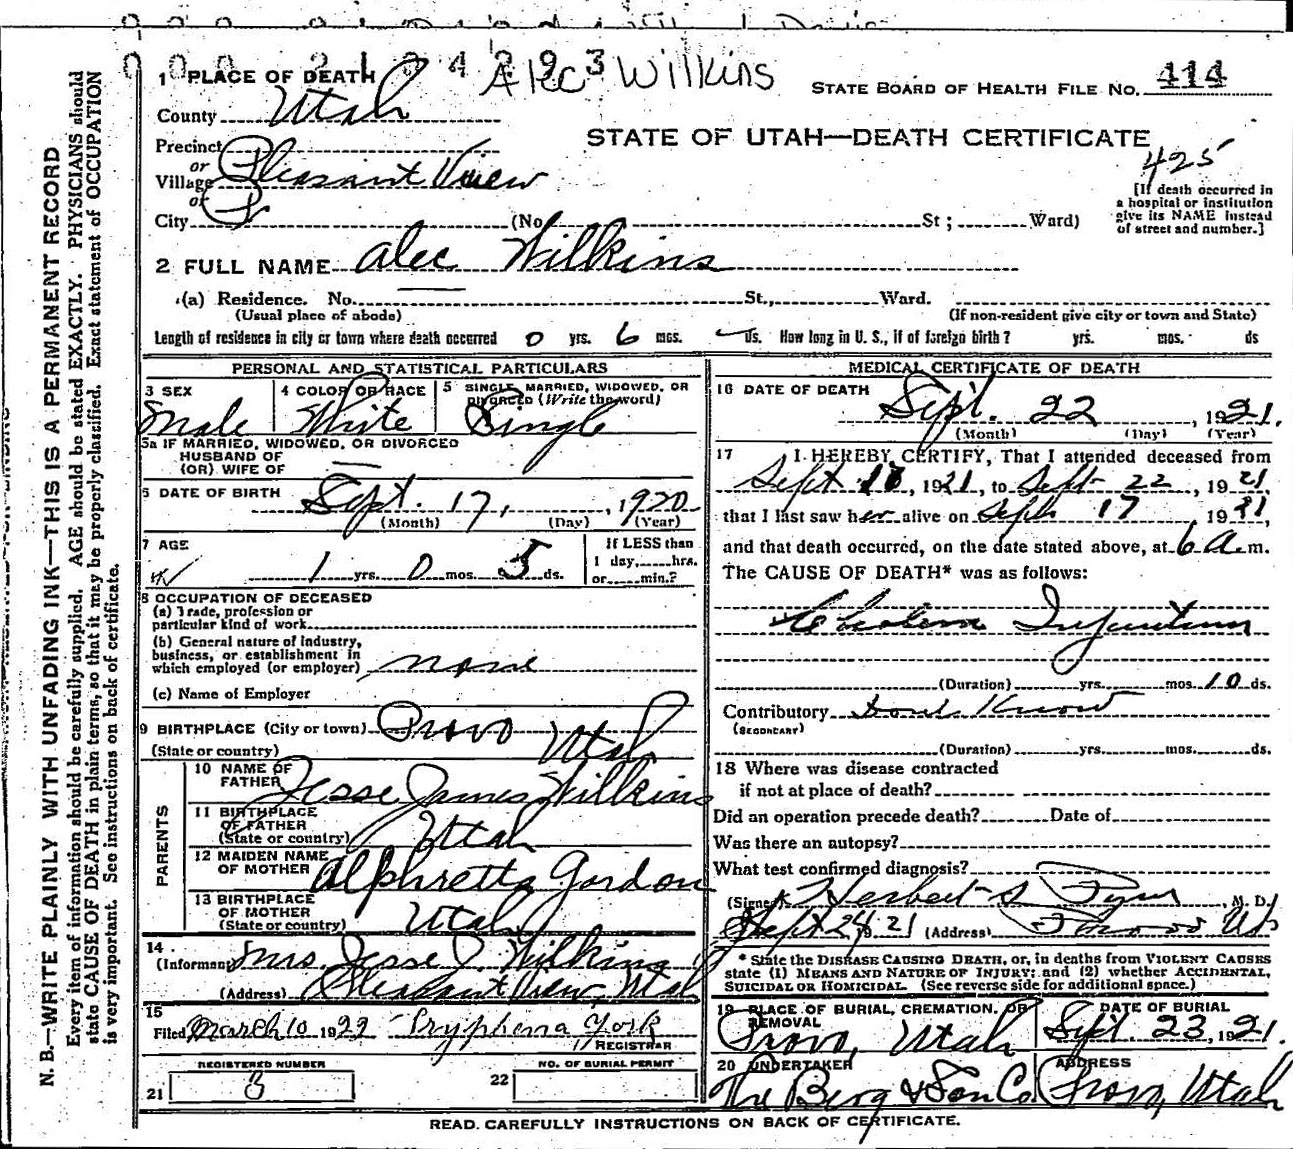 Alec Wilkins
1 PLACE OF DEATH
STATE BOARD OF HEALTH FILE NO. 414
County Utah
STATE OF UTAH—DEATH CERTIFICATE
425
Precinct
or
Village Pleasant View
or
City (No. St; Ward)
[If death occurred in
a hospital or institution
give its NAME instead
of street and number.]
2 FULL NAME Alec Wilkins
(a) Residence. No. St., Ward.
(Usual place of abode) (If non-resident give city or town and State)
Length of residence in city or town where death occurred 0 yrs. 6 mos. ds. How long in U. S., if of foreign birth? yrs. mos. ds
PERSONAL AND STATISTICAL PARTICULARS
3 SEX Male
4 COLOR OR RACE White
5 SINGLE, MARRIED, WIDOWED, OR
DIVORCED (Write the word) Single
5a IF MARRIED, WIDOWED, OR DIVORCED
HUSBAND OF
(OR) WIFE OF
6 DATE OF BIRTH Sept. 17, 1920
(Month) (Day) (Year)
7 AGE
1 yrs. 0 mos. 5 ds.
If LESS than
1 day, hrs.
or min.?
8 OCCUPATION OF DECEASED
(a) Trade, profession or
particular kind of work
(b) General nature of industry,
business, or establishment in
which employed (or employer) none
(c) Name of Employer
9 BIRTHPLACE (City or town) Provo
(State or country) Utah
PARENTS
10 NAME OF
FATHER Jesse James Wilkins
11 BIRTHPLACE
OF FATHER
(State or country) Utah
12 MAIDEN NAME
OF MOTHER Alphretta Gordon
13 BIRTHPLACE
OF MOTHER
(State or country) Utah
14
(Informant Mrs. Jesse J. Wilkins
(Address) Pleasant View, Utah
15
Filed March 10 1922 Tryphena York
REGISTRAR
REGISTERED NUMBER
21 3
NO. OF BURIAL PERMIT
22
MEDICAL CERTIFICATE OF DEATH
16 DATE OF DEATH
Sept. 22, 1921.
(Month) (Day) (Year)
17 I HEREBY CERTIFY, That I attended deceased from
Sept 1921, to Sept 22, 1921
that I last saw her alive on Sept 17 1921,
and that death occurred, on the date stated above, at 6 a.m.
The CAUSE OF DEATH* was as follows:
Cholera Infantum
(Duration) yrs. mos. 10 ds.
Contributory Dont Know
(SECONDARY)
(Duration) yrs. mos. ds.
18 Where was disease contracted
if not at place of death?
Did an operation precede death? Date of
Was there an autopsy?
What test confirmed diagnosis?
(Signed) Herbert S. M. D.
Sept 24 1921 (Address) Provo Ut
* State the DISEASE CAUSING DEATH, or, in deaths from VIOLENT CAUSES
state (1) MEANS AND NATURE OF INJURY; and (2) whether ACCIDENTAL,
SUICIDAL OR HOMICIDAL. (See reverse side for additional space.)
19 PLACE OF BURIAL, CREMATION, OR
REMOVAL
Provo, Utah
DATE OF BURIAL
Sept. 23, 1921.
20 UNDERTAKER
The Berg & Son Co
ADDRESS
Provo, Utah
READ CAREFULLY INSTRUCTIONS ON BACK OF CERTIFICATE.
N. B.—WRITE PLAINLY WITH UNFADING INK—THIS IS A PERMANENT RECORD
Every item of information should be carefully supplied. AGE should be stated EXACTLY. PHYSICIANS should
state CAUSE OF DEATH in plain terms, so that it may be properly classified. Exact statement of OCCUPATION
is very important. See instructions on back of certificate.